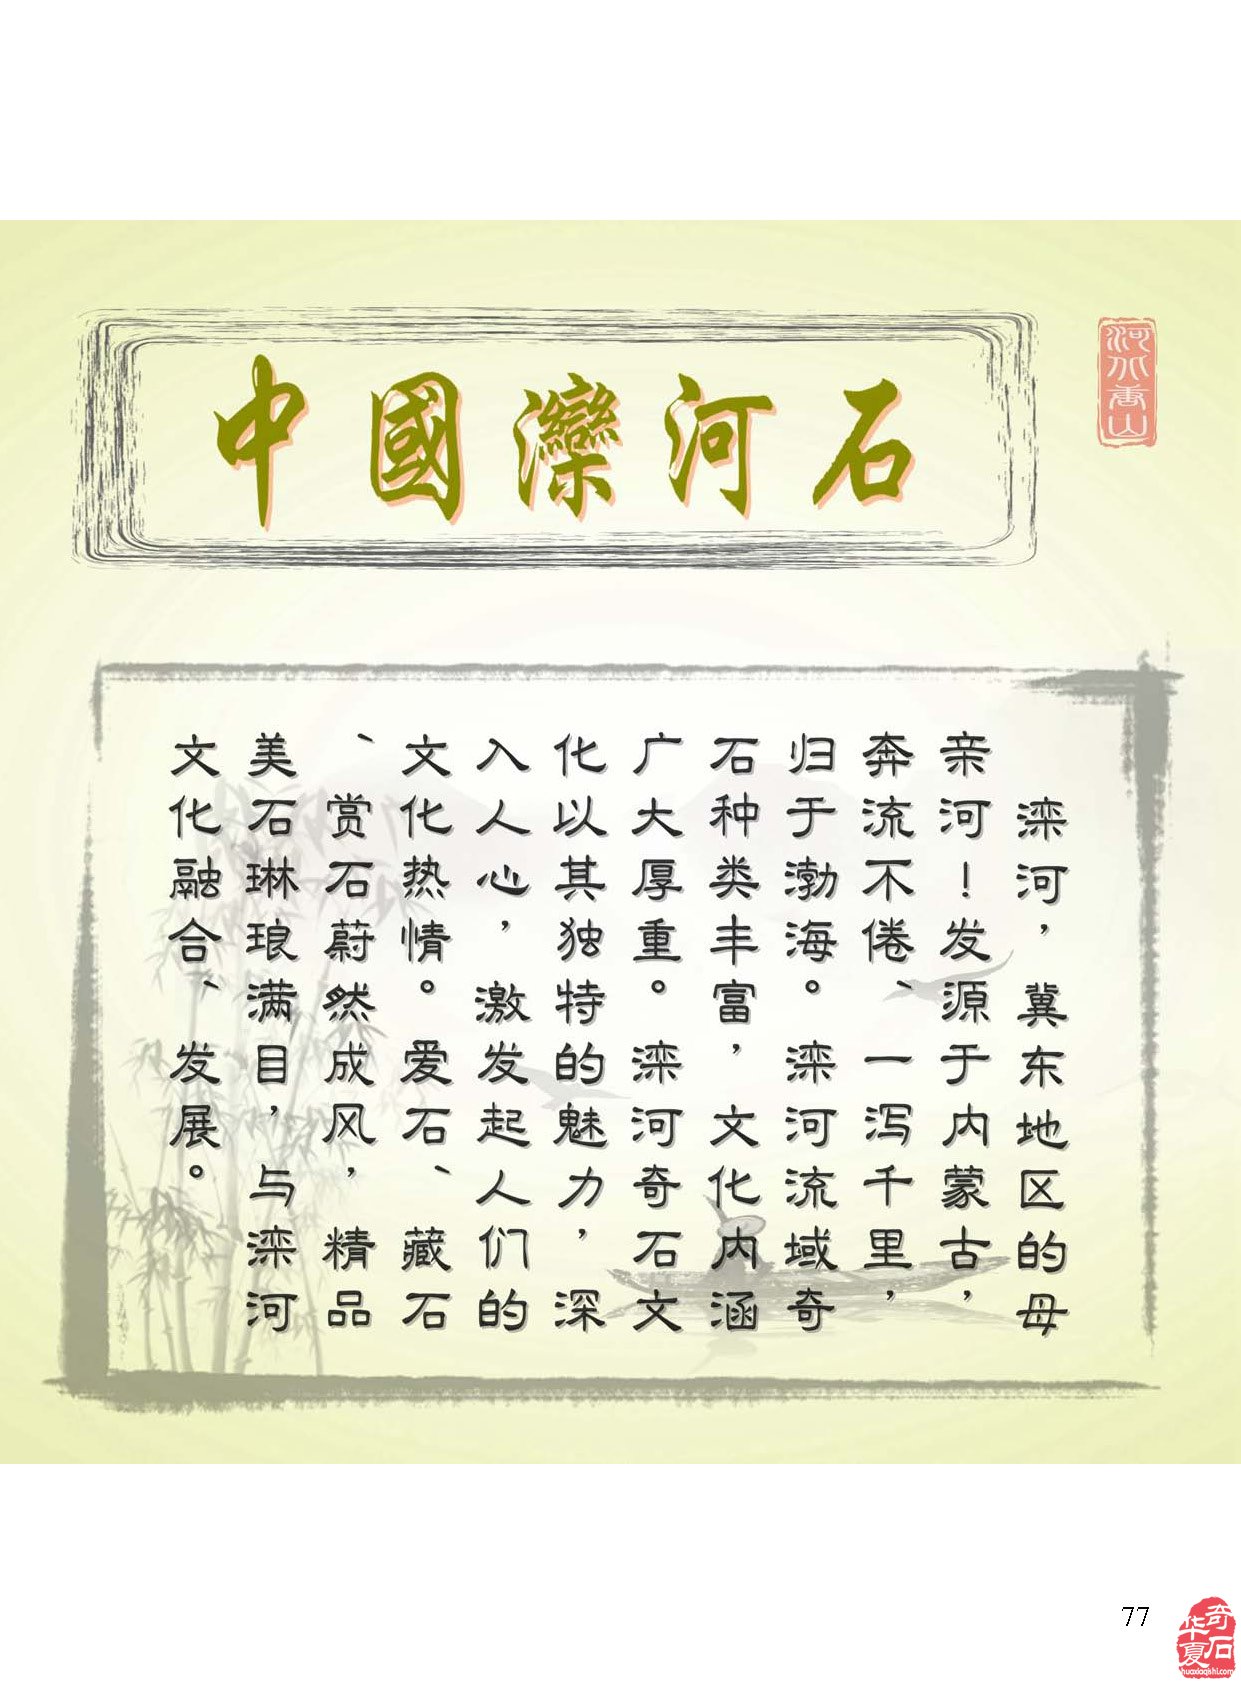 中國灤河石
河北唐山
滦河，冀东地区的母
亲河！发源于内蒙古，
奔流不倦、一泻千里，
归于渤海。滦河流域奇
石种类丰富，文化内涵
广大厚重。滦河奇石文
化以其独特的魅力，深
入人心，激发起人们的
文化热情。爱石、藏石
、赏石蔚然成风，精品
美石琳琅满目，与滦河
文化融合、发展。
77
华夏奇石
huaxiaqishi.com